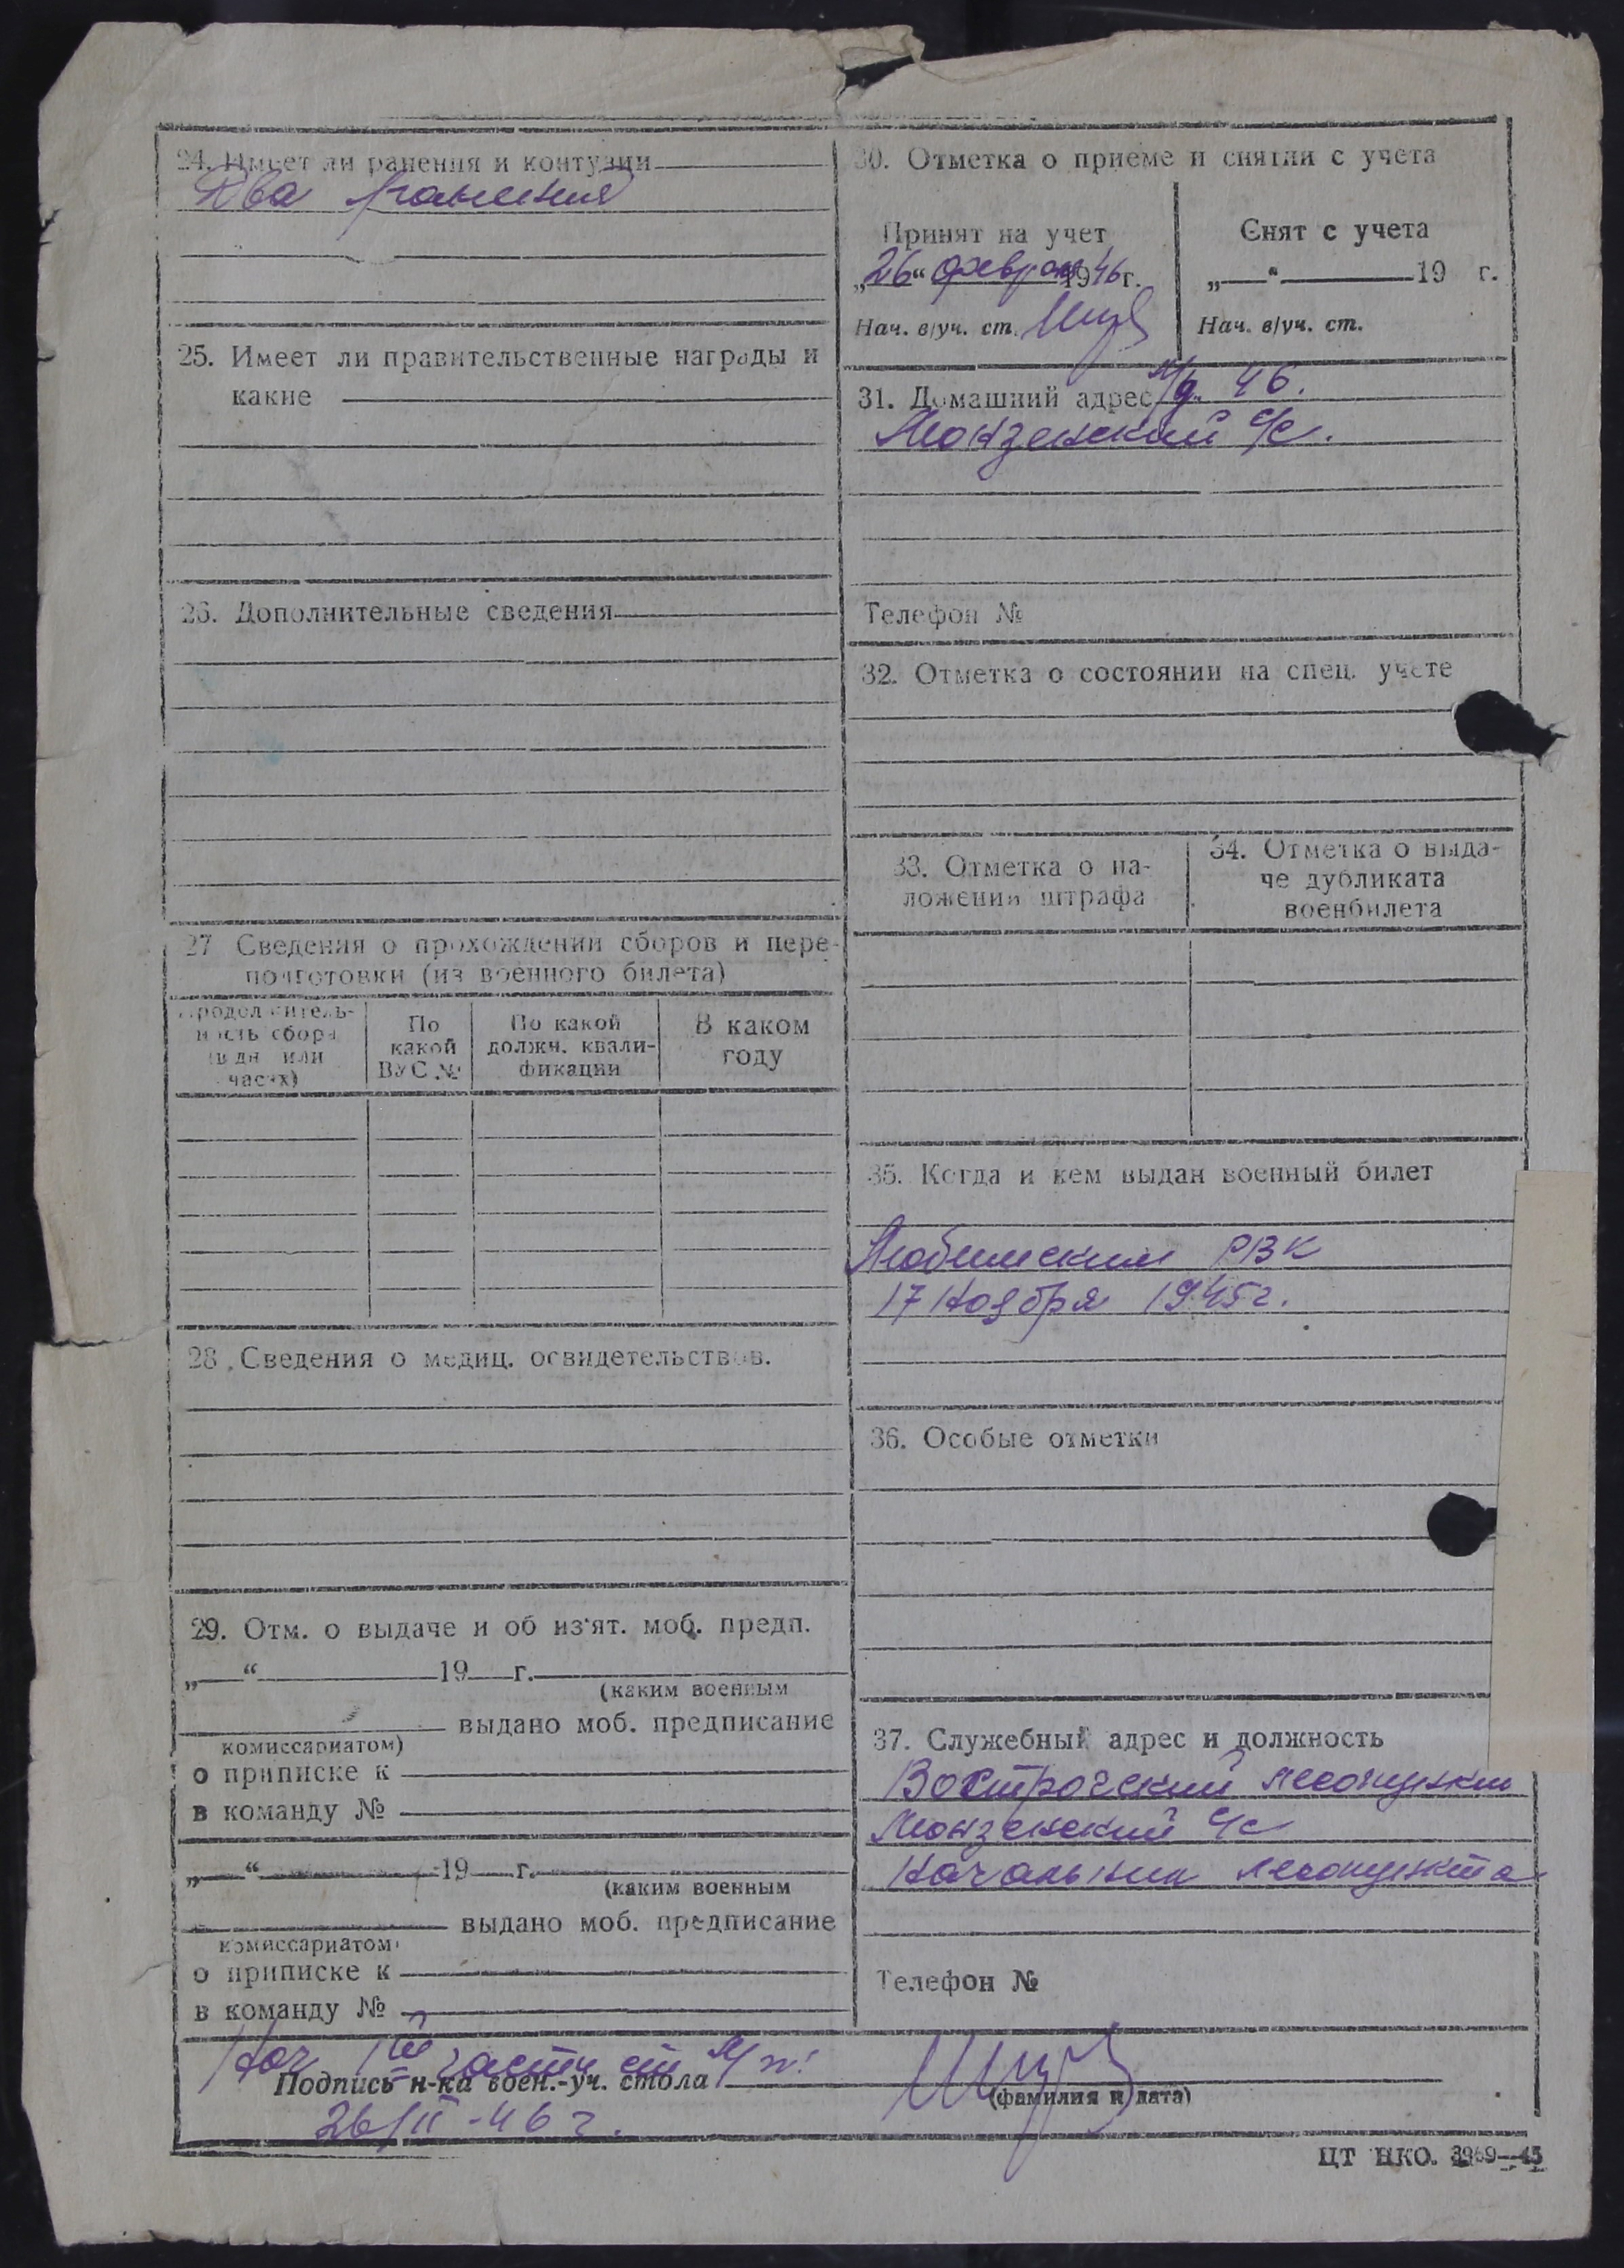 24. Имеет ли ранения и контузии
Два ранения
25. Имеет ли правительственные награды и
какие
26. Дополнительные сведения
27 Сведения о прохождении сборов и пере-
подготовки (из военного билета)
Продолжитель-
ность сбора
(в дн или
часах)
По
какой
ВУС №
По какой
должн. квали-
фикации
В каком
году
28. Сведения о медиц. освидетельствов.
29. Отм. о выдаче и об из'ят. моб. предп.
„ “ 19 г.
(каким военным
выдано моб. предписание
комиссариатом)
о приписке к
в команду №
„ “ 19 г.
(каким военным
выдано моб. предписание
комиссариатом
о приписке к
в команду №
30. Отметка о приеме и снятии с учета
Принят на учет
„26“ феврал 1946 г.
Нач. в/уч. ст.
Снят с учета
„ “ 19 г.
Нач. в/уч. ст.
31. Домашний адрес 46.
Монзенский с/с.
Телефон №
32. Отметка о состоянии на спец. учете
33. Отметка о на-
ложении штрафа
34. Отметка о выда-
че дубликата
военбилета
35. Когда и кем выдан военный билет
Любимским РВК
17 ноября 1945г.
36. Особые отметки
37. Служебный адрес и должность
лесопункт
Монзенский с/с
Начальник лесопункта
Телефон №
Нач части
Подпись н-ка воен.-уч. стола
(фамилия и дата)
26/II-46 г.
ЦТ НКО. 3969—45